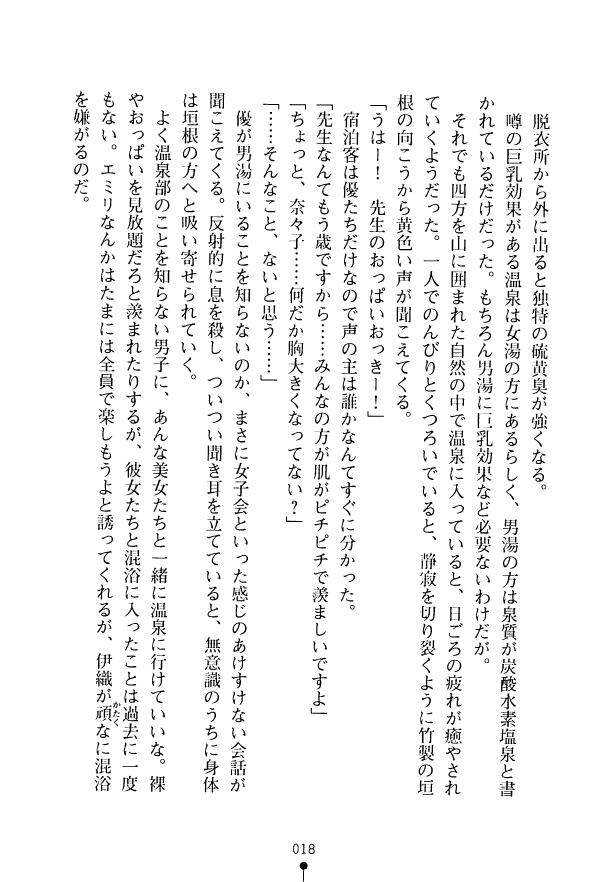 脱衣所から外に出ると独特の硫黄臭が強くなる。
噂の巨乳効果がある温泉は女湯の方にあるらしく、男湯の方は泉質が炭酸水素塩泉と書
かれているだけだった。もちろん男湯に巨乳効果など必要ないわけだが。
それでも四方を山に囲まれた自然の中で温泉に入っていると、日ごろの疲れが癒やされ
ていくようだった。一人でのんびりとくつろいでいると、静寂を切り裂くように竹製の垣
根の向こうから黄色い声が聞こえてくる。
「うはー！　先生のおっぱいおっきー！」
宿泊客は優たちだけなので声の主は誰かなんてすぐに分かった。
「先生なんてもう歳ですから……みんなの方が肌がピチピチで羨ましいですよ」
「ちょっと、奈々子……何だか胸大きくなってない？」
「……そんなこと、ないと思う……」
優が男湯にいることを知らないのか、まさに女子会といった感じのあけすけない会話が
聞こえてくる。反射的に息を殺し、ついつい聞き耳を立てていると、無意識のうちに身体
は垣根の方へと吸い寄せられていく。
よく温泉部のことを知らない男子に、あんな美女たちと一緒に温泉に行けていいな。裸
やおっぱいを見放題だろと羨まれたりするが、彼女たちと混浴に入ったことは過去に一度
もない。エミリなんかはたまには全員で楽しもうよと誘ってくれるが、伊織が頑なに混浴
かたく
を嫌がるのだ。
018